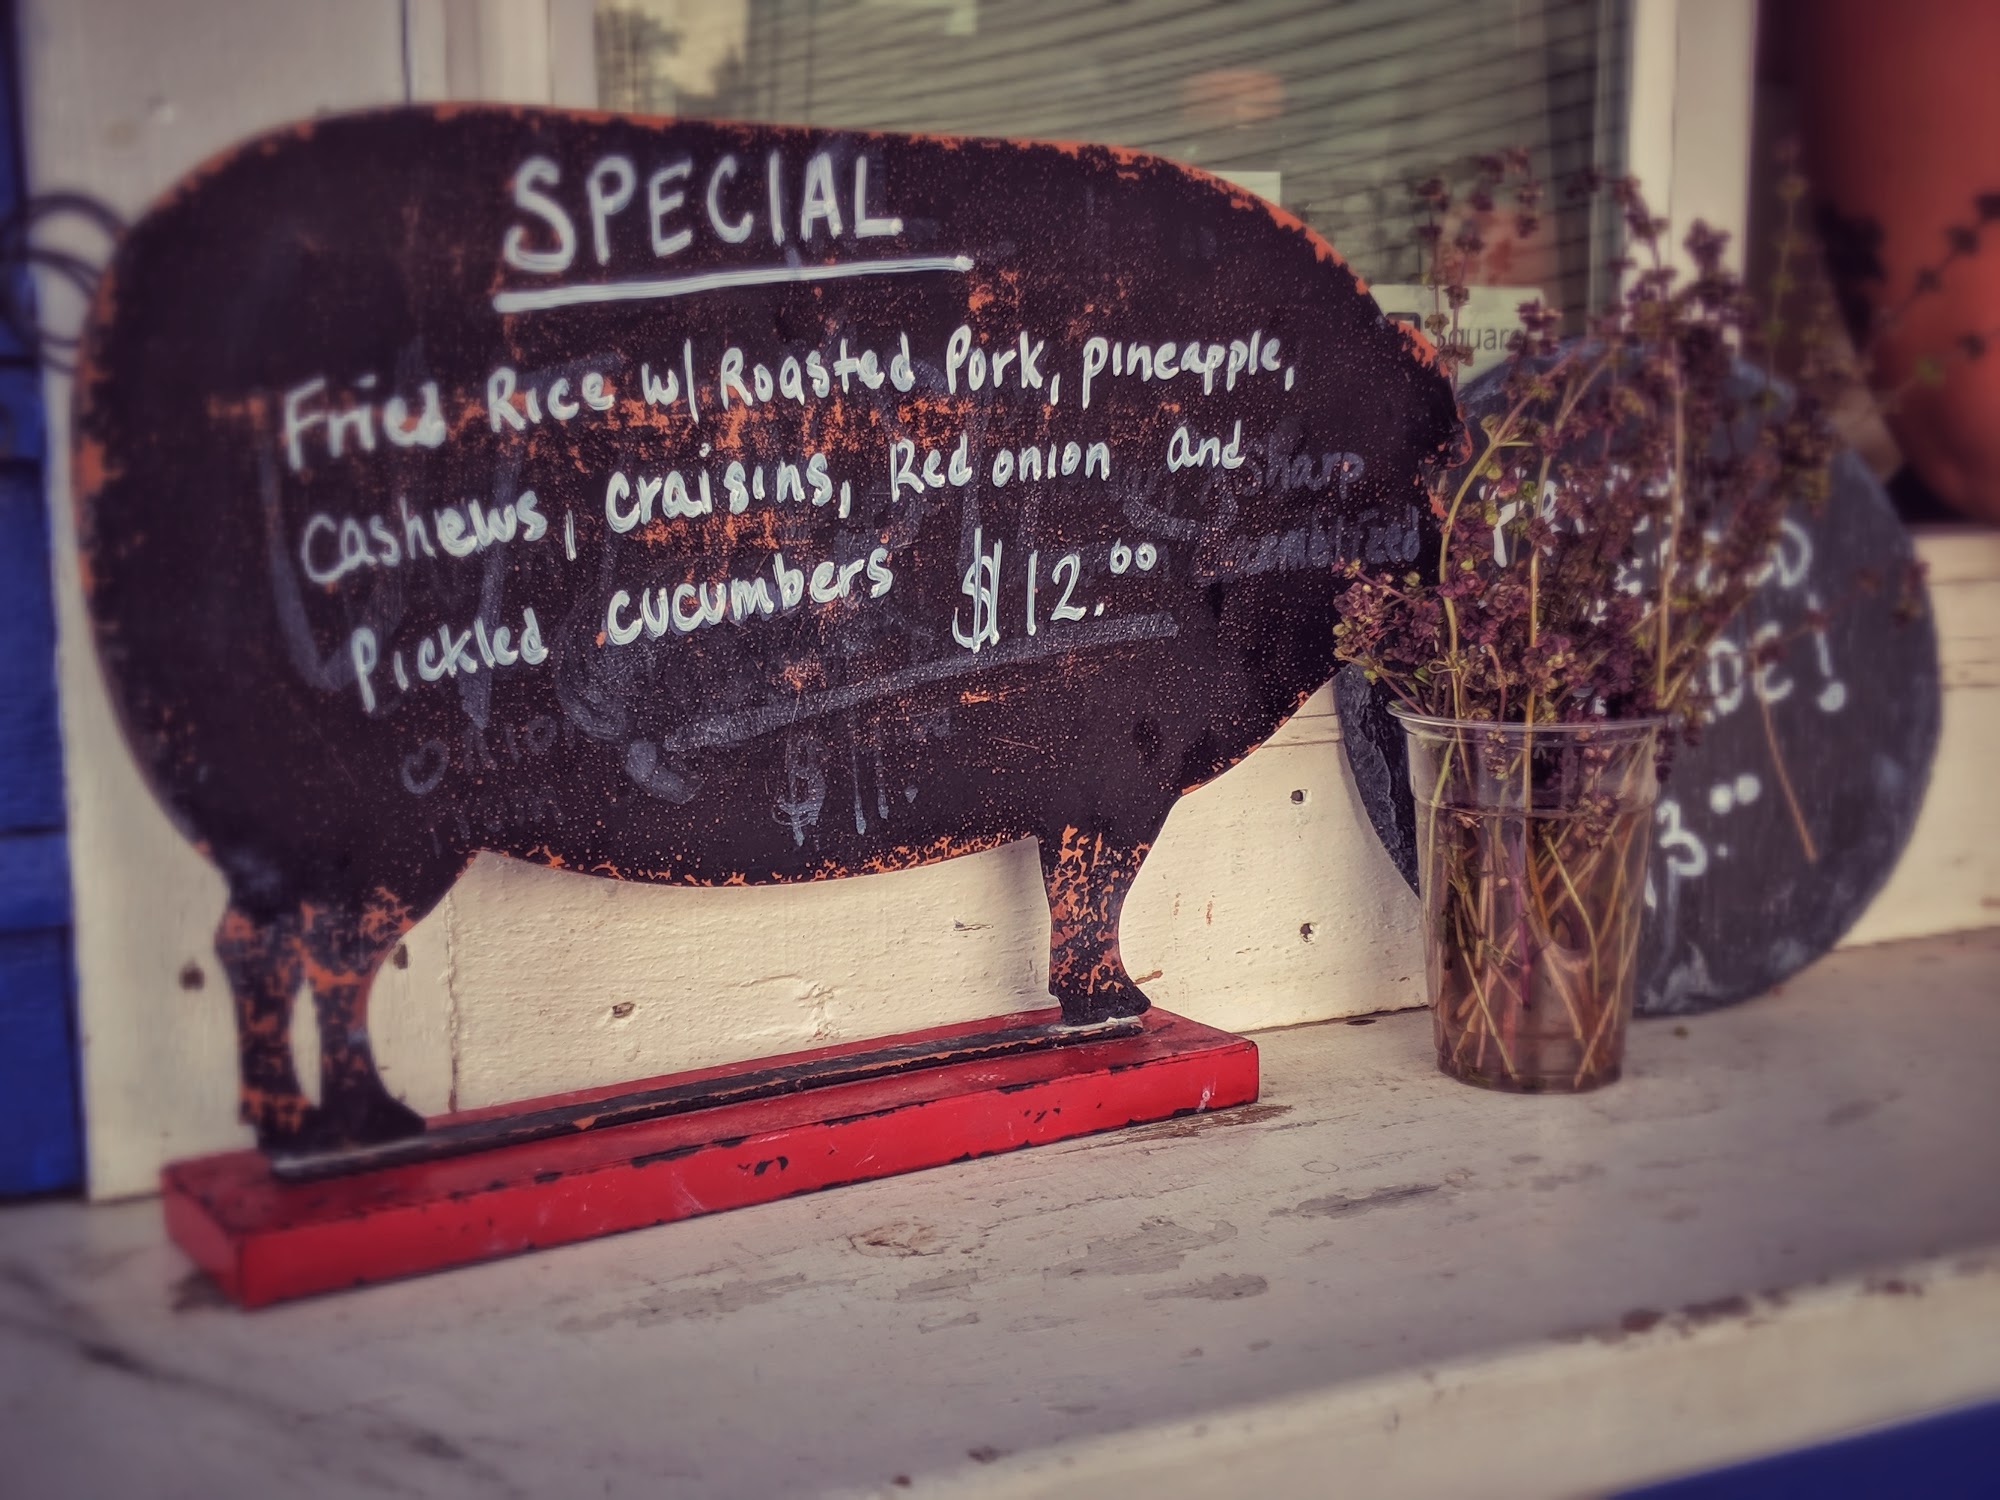 SPECIAL
Fried Rice w/ Roasted Pork, pineapple,
cashews, craisins, Red onion and
Pickled cucumbers $12.00
sharp
onion
$11.
Square
DE!
3.00